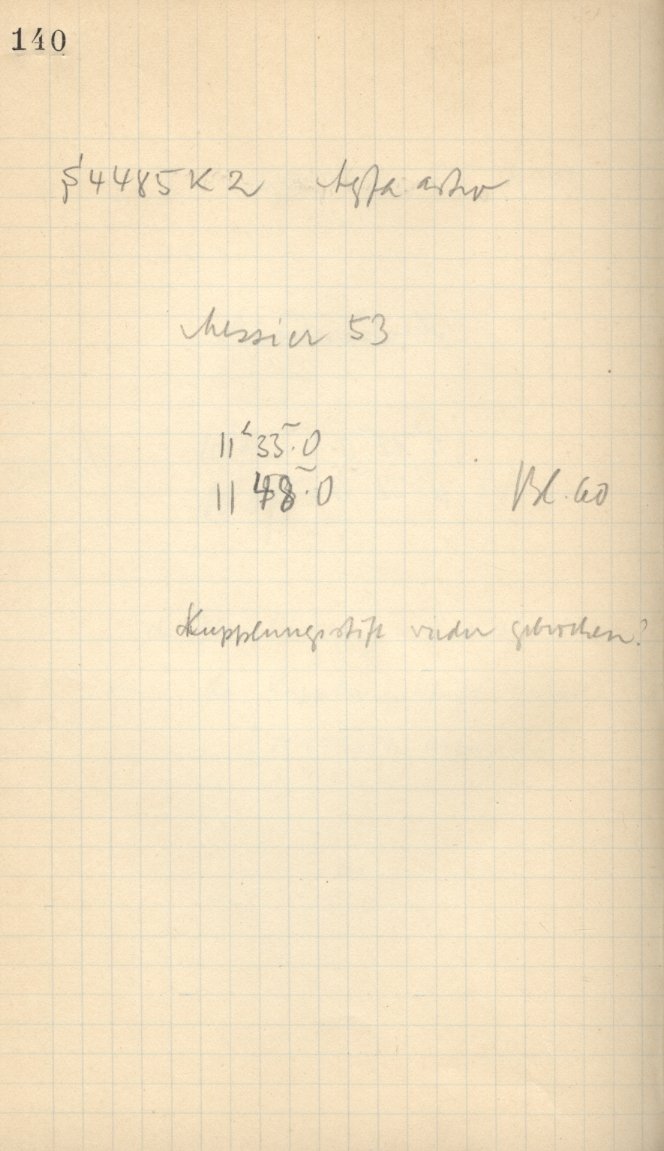 140
S 4485 K 2 Agfa astro
Messier 53
11ʰ 33ᵐ.0
11 48ᵐ.0 Bl. 60
Kupplungsstift wieder gebrochen?